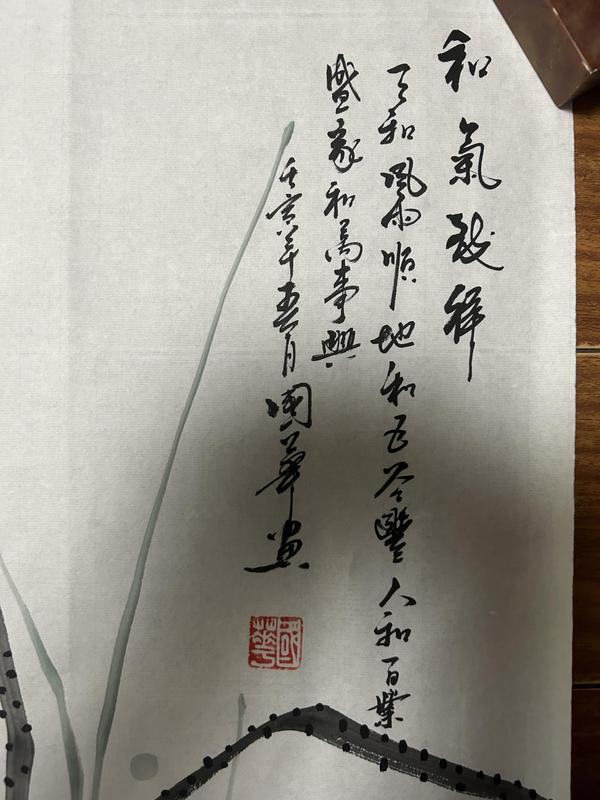 和氣致祥
天和風雨順地和五谷豐人和百業
盛家和萬事興
壬寅年五月國華畫
國華